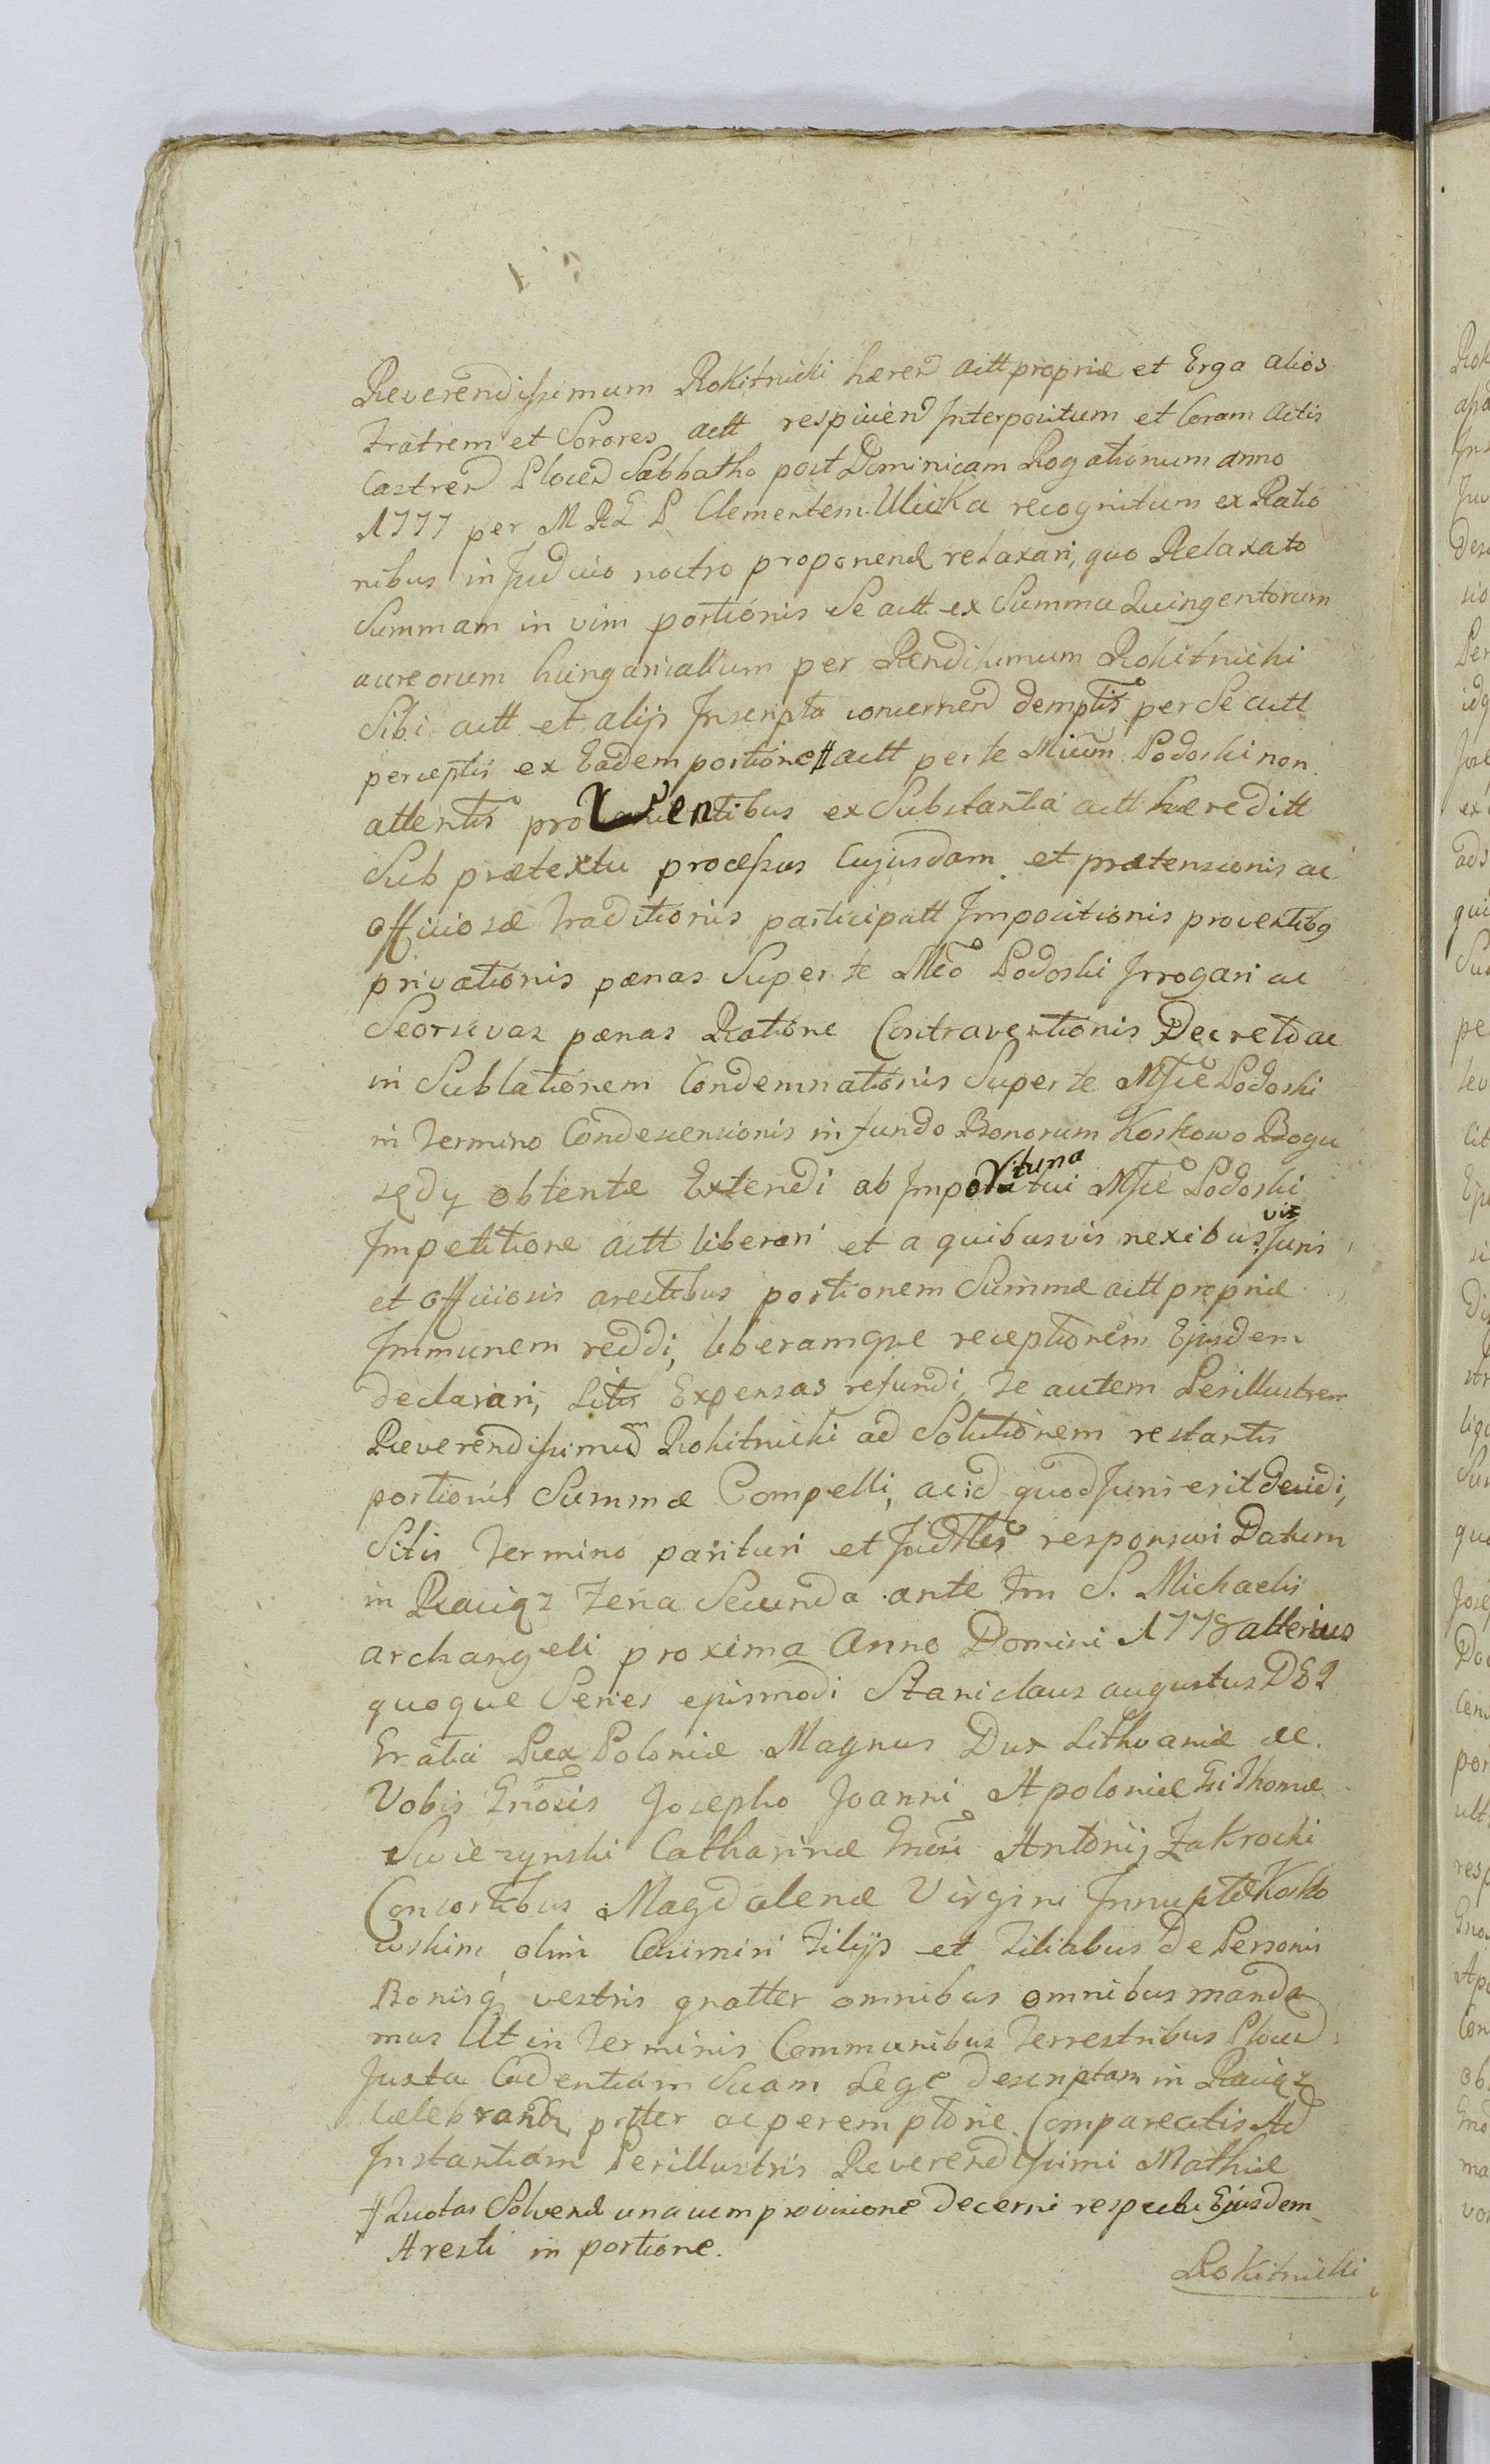 Reverendissimum Rokitnicki hæren̄ actt propriæ et Erga alios
Fratrem et Sorores actt respicien̄ Interpositum et Coram Actis
Castren̄ Plocen̄ Sabbatho post Dominicam Rogationum anno
1777 per M R E P Clementem recognitum ex Ratio
nibus in Judicio nostro proponend relaxari, quo Relaxato
Summam in vim portionis Se actt ex Summa Quingentorum
aureorum hungaricalium per Rendissimum Rokitnicki
Sibi actt et alijs Inscripta concernen̄ demptis per Se actt
perceptis ex Eadem portione # actt per te Mfcum Podoski non
attentis proventibus ex Substantia actt hæreditt
Sub prætextu processus Cujusdam et prætensionis ac
officiosæ traditionis participatt Impositionis proventibg
privationis pænas Super te Mfco Podoski Irrogari ac
Seorsivas pænas Ratione Contraventionis Decreto ac
in Sublationem Condemnationis Super te Mfce Podoski
in Termino Condescensionis in fundo Bonorum Koskowo Bogu
sędz obtentæ Extendi ab Mfce Podoski
Impetitione actt liberari et a quibusvis nexibus vis Juris
et officiosis arestibus portionem Summæ actt propriæ
Immunem reddi, liberamque receptionem Ejusdem
declarari, Litis Expensas refundi, Te autem Perillustrem
Reverendissimum Rokitnicki ad Solutionem restantis
portionis Summæ Compelli, ac id quod Juris erit decidi,
Sitis Termino parituri et Judtler responsuri Datum
in Raciąz Feria Secunda ante Fm S. Michaelis
archangeli proxima Anno Domini 1778 alterius
quoque Series ejusmodi Stanislaus augustus DEI
Gratia Rex Poloniæ Magnus Dux Lithvaniæ &c.
Vobis Gnosis Josepho Joanni Apoloniæ Gsi Thomæ
Swiezynski Catharinæ Gnosi Antonij Zakrocki
Consortibus Magdalenæ Virgini Innuptæ Kosko
wskim olim Casimiri Filijs et Filiabus de Personis
Bonisq vestris gnatter omnibus omnibus manda
mus Ut in Terminis Communibus Terrestribus Plocen̄
Juxta Cadentiam Suam Lege descriptam in Raciąz
celebrand ptter ac peremptorie Compareatis Ad
Instantiam Perillustris Reverendissimi Mathiæ
# Quotas Solvend una cum provisione decerni respectu Ejusdem
Aresti in portione.
Rokitnicki